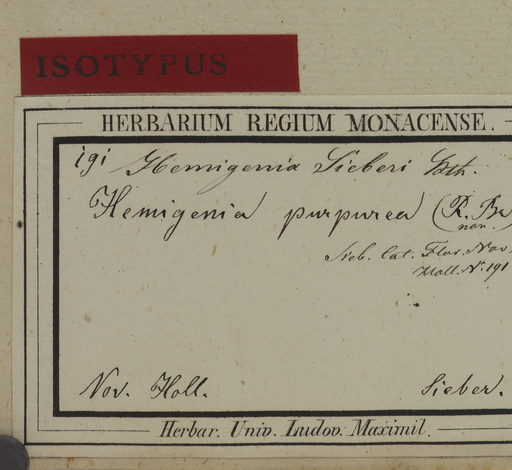 ISOTYPUS
HERBARIUM REGIUM MONACENSE.
191 Hemigenia Sieberi Bth.
Hemigenia purpurea (R. Br
non.
Sieb. Cat. Flor. Nov.
Holl. N. 191
Nov. Holl. Sieber.
Herbar. Univ. Ludov. Maximil.